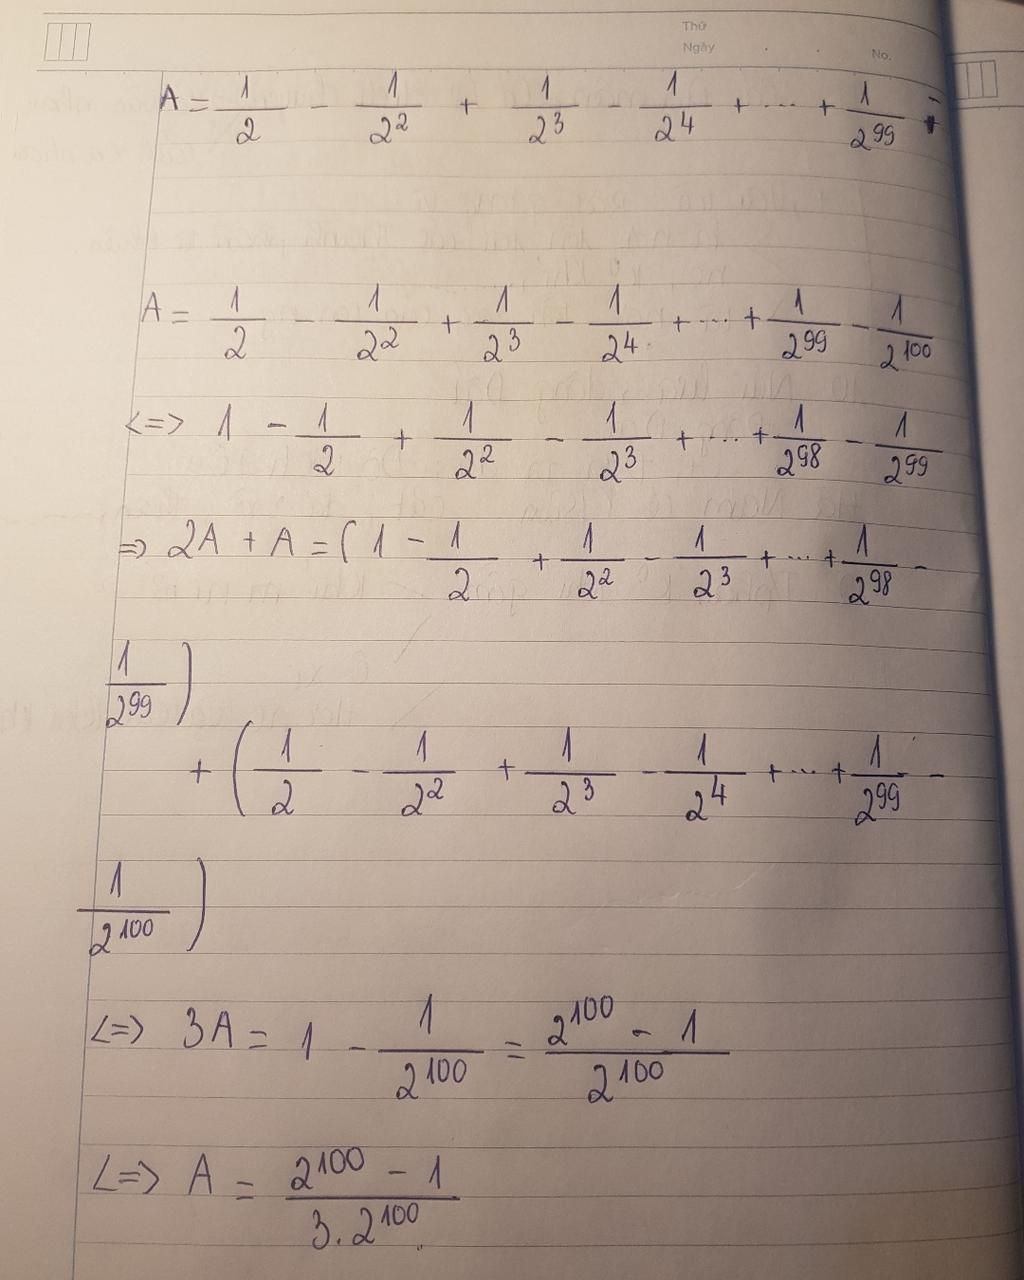 Thứ
Ngày . . No.
A = 1/2 - 1/2² + 1/2³ - 1/2⁴ + ... + 1/2⁹⁹ -
A = 1/2 - 1/2² + 1/2³ - 1/2⁴ + ... + 1/2⁹⁹ - 1/2¹⁰⁰
<=> 1 - 1/2 + 1/2² - 1/2³ + ... + 1/2⁹⁸ - 1/2⁹⁹
=> 2A + A = ( 1 - 1/2 + 1/2² - 1/2³ + ... + 1/2⁹⁸ -
1/2⁹⁹ )
+ ( 1/2 - 1/2² + 1/2³ - 1/2⁴ + ... + 1/2⁹⁹ -
1/2¹⁰⁰ )
<=> 3A = 1 - 1/2¹⁰⁰ = (2¹⁰⁰ - 1)/2¹⁰⁰
<=> A = (2¹⁰⁰ - 1)/(3. 2¹⁰⁰)